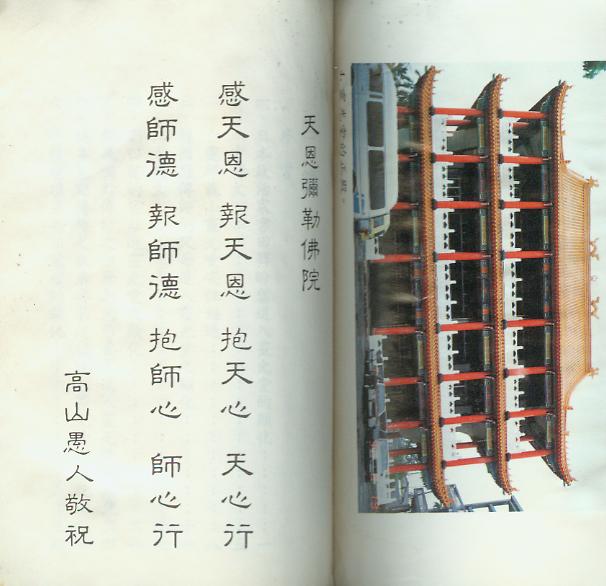 天恩彌勒佛院
感天恩 報天恩 抱天心 天心行
感師德 報師德 抱師心 師心行
高山愚人敬祝